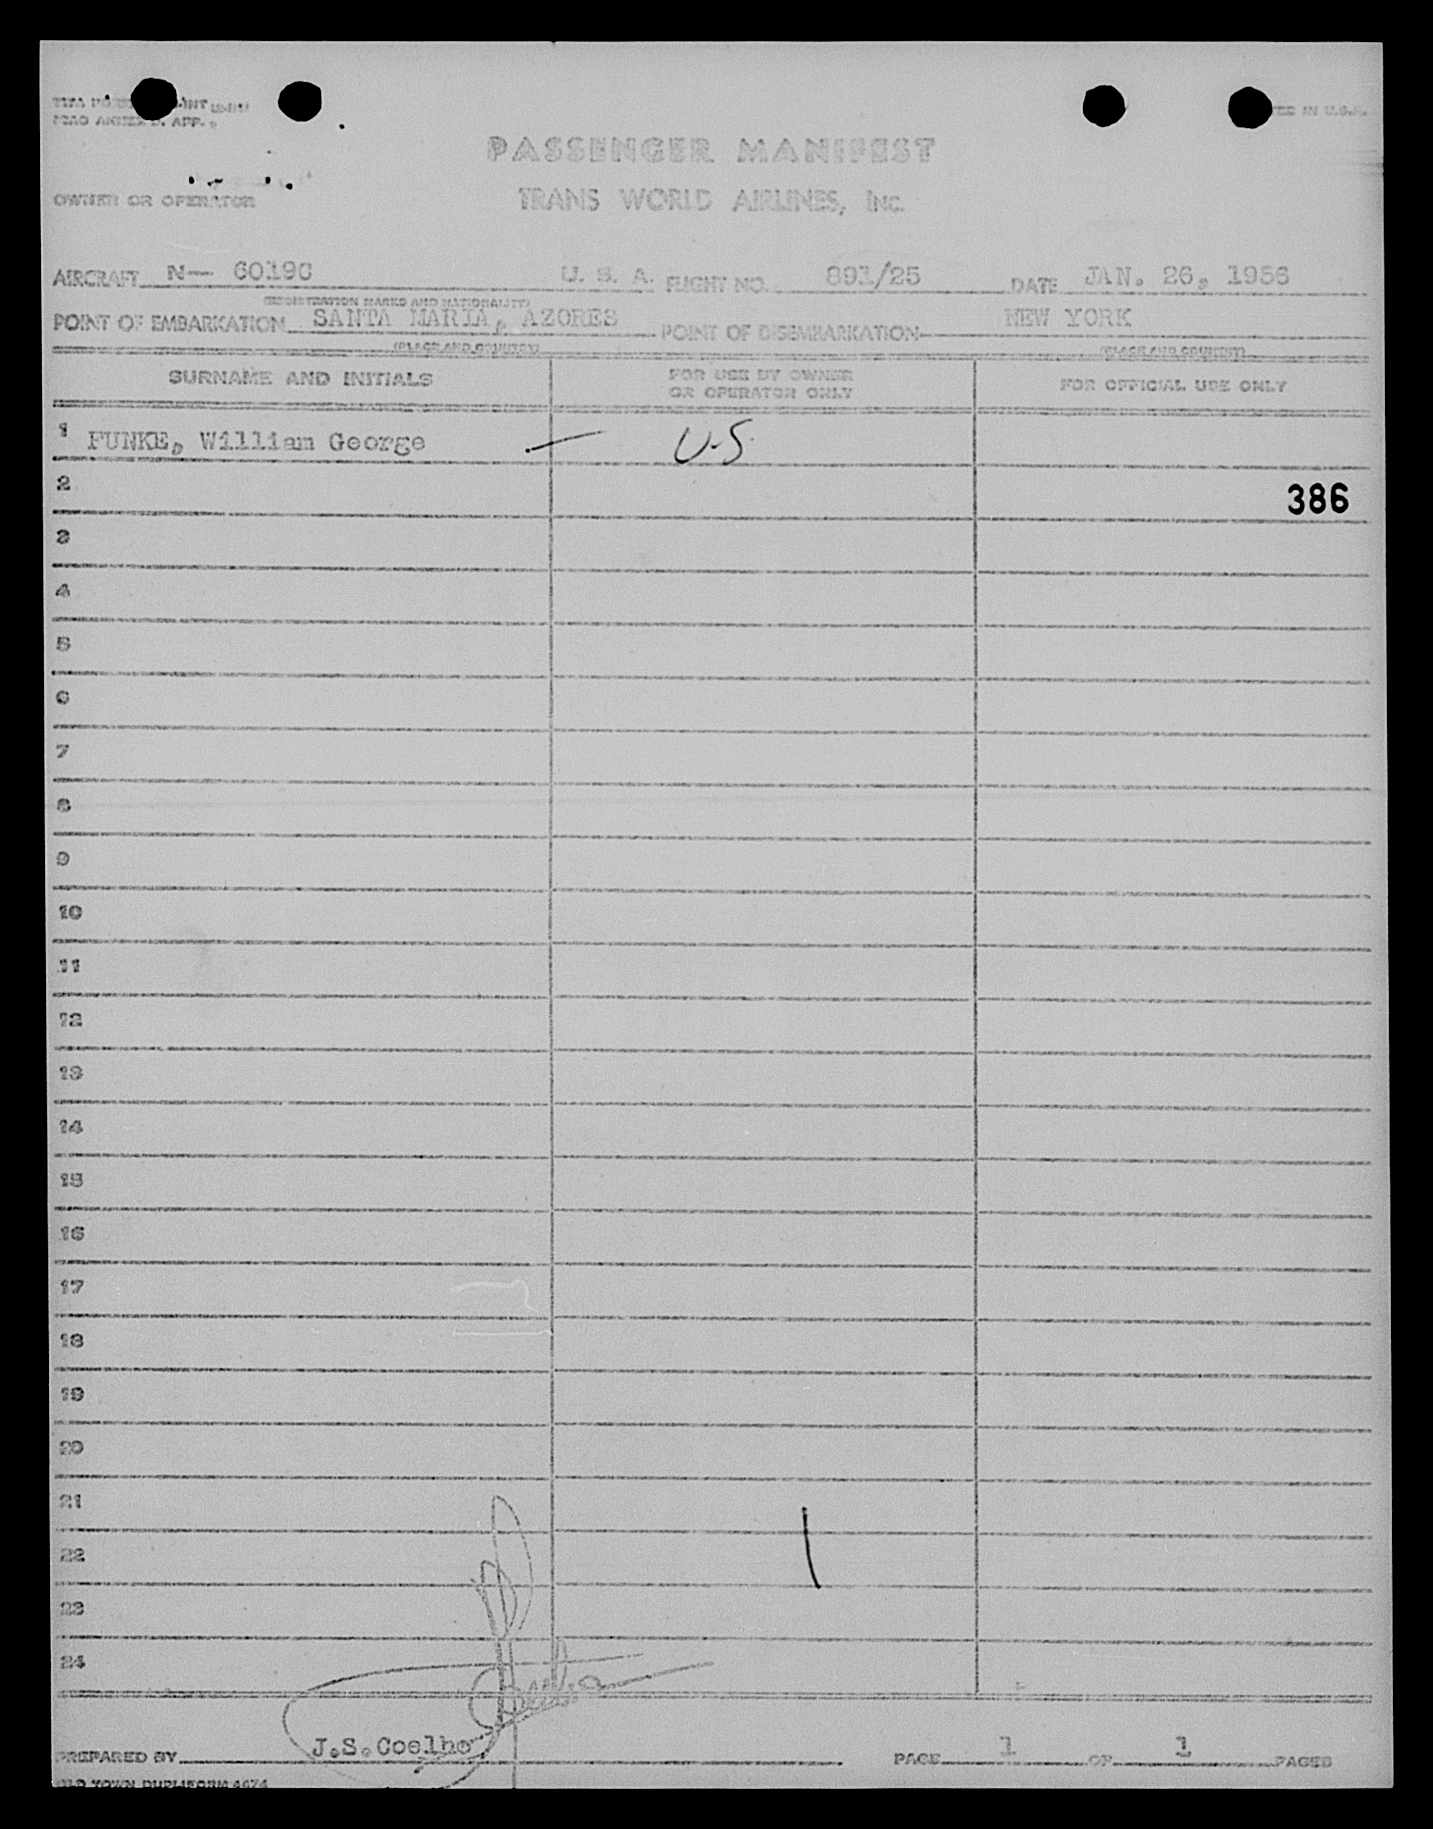 PRINTED IN U.S.A.
ICAO ANNEX 9. APP.
PASSENGER MANIFEST
OWNER OR OPERATOR TRANS WORLD AIRLINES, INC.
AIRCRAFT N— 6019C U. S. A. FLIGHT NO. 891/25 DATE JAN. 26, 1956
(REGISTRATION MARKS AND NATIONALITY)
POINT OF EMBARKATION SANTA MARIA, AZORES POINT OF DISEMBARKATION NEW YORK
(PLACE AND COUNTRY) (PLACE AND COUNTRY)
SURNAME AND INITIALS FOR USE BY OWNER OR OPERATOR ONLY FOR OFFICIAL USE ONLY
1 FUNKE, William George — U.S.
2 386
3
4
5
6
7
8
9
10
11
12
13
14
15
16
17
18
19
20
21
22
23
24
PREPARED BY J.S.Coelho PAGE 1 OF 1 PAGES
OLD TOWN DUPLIFORM 4674